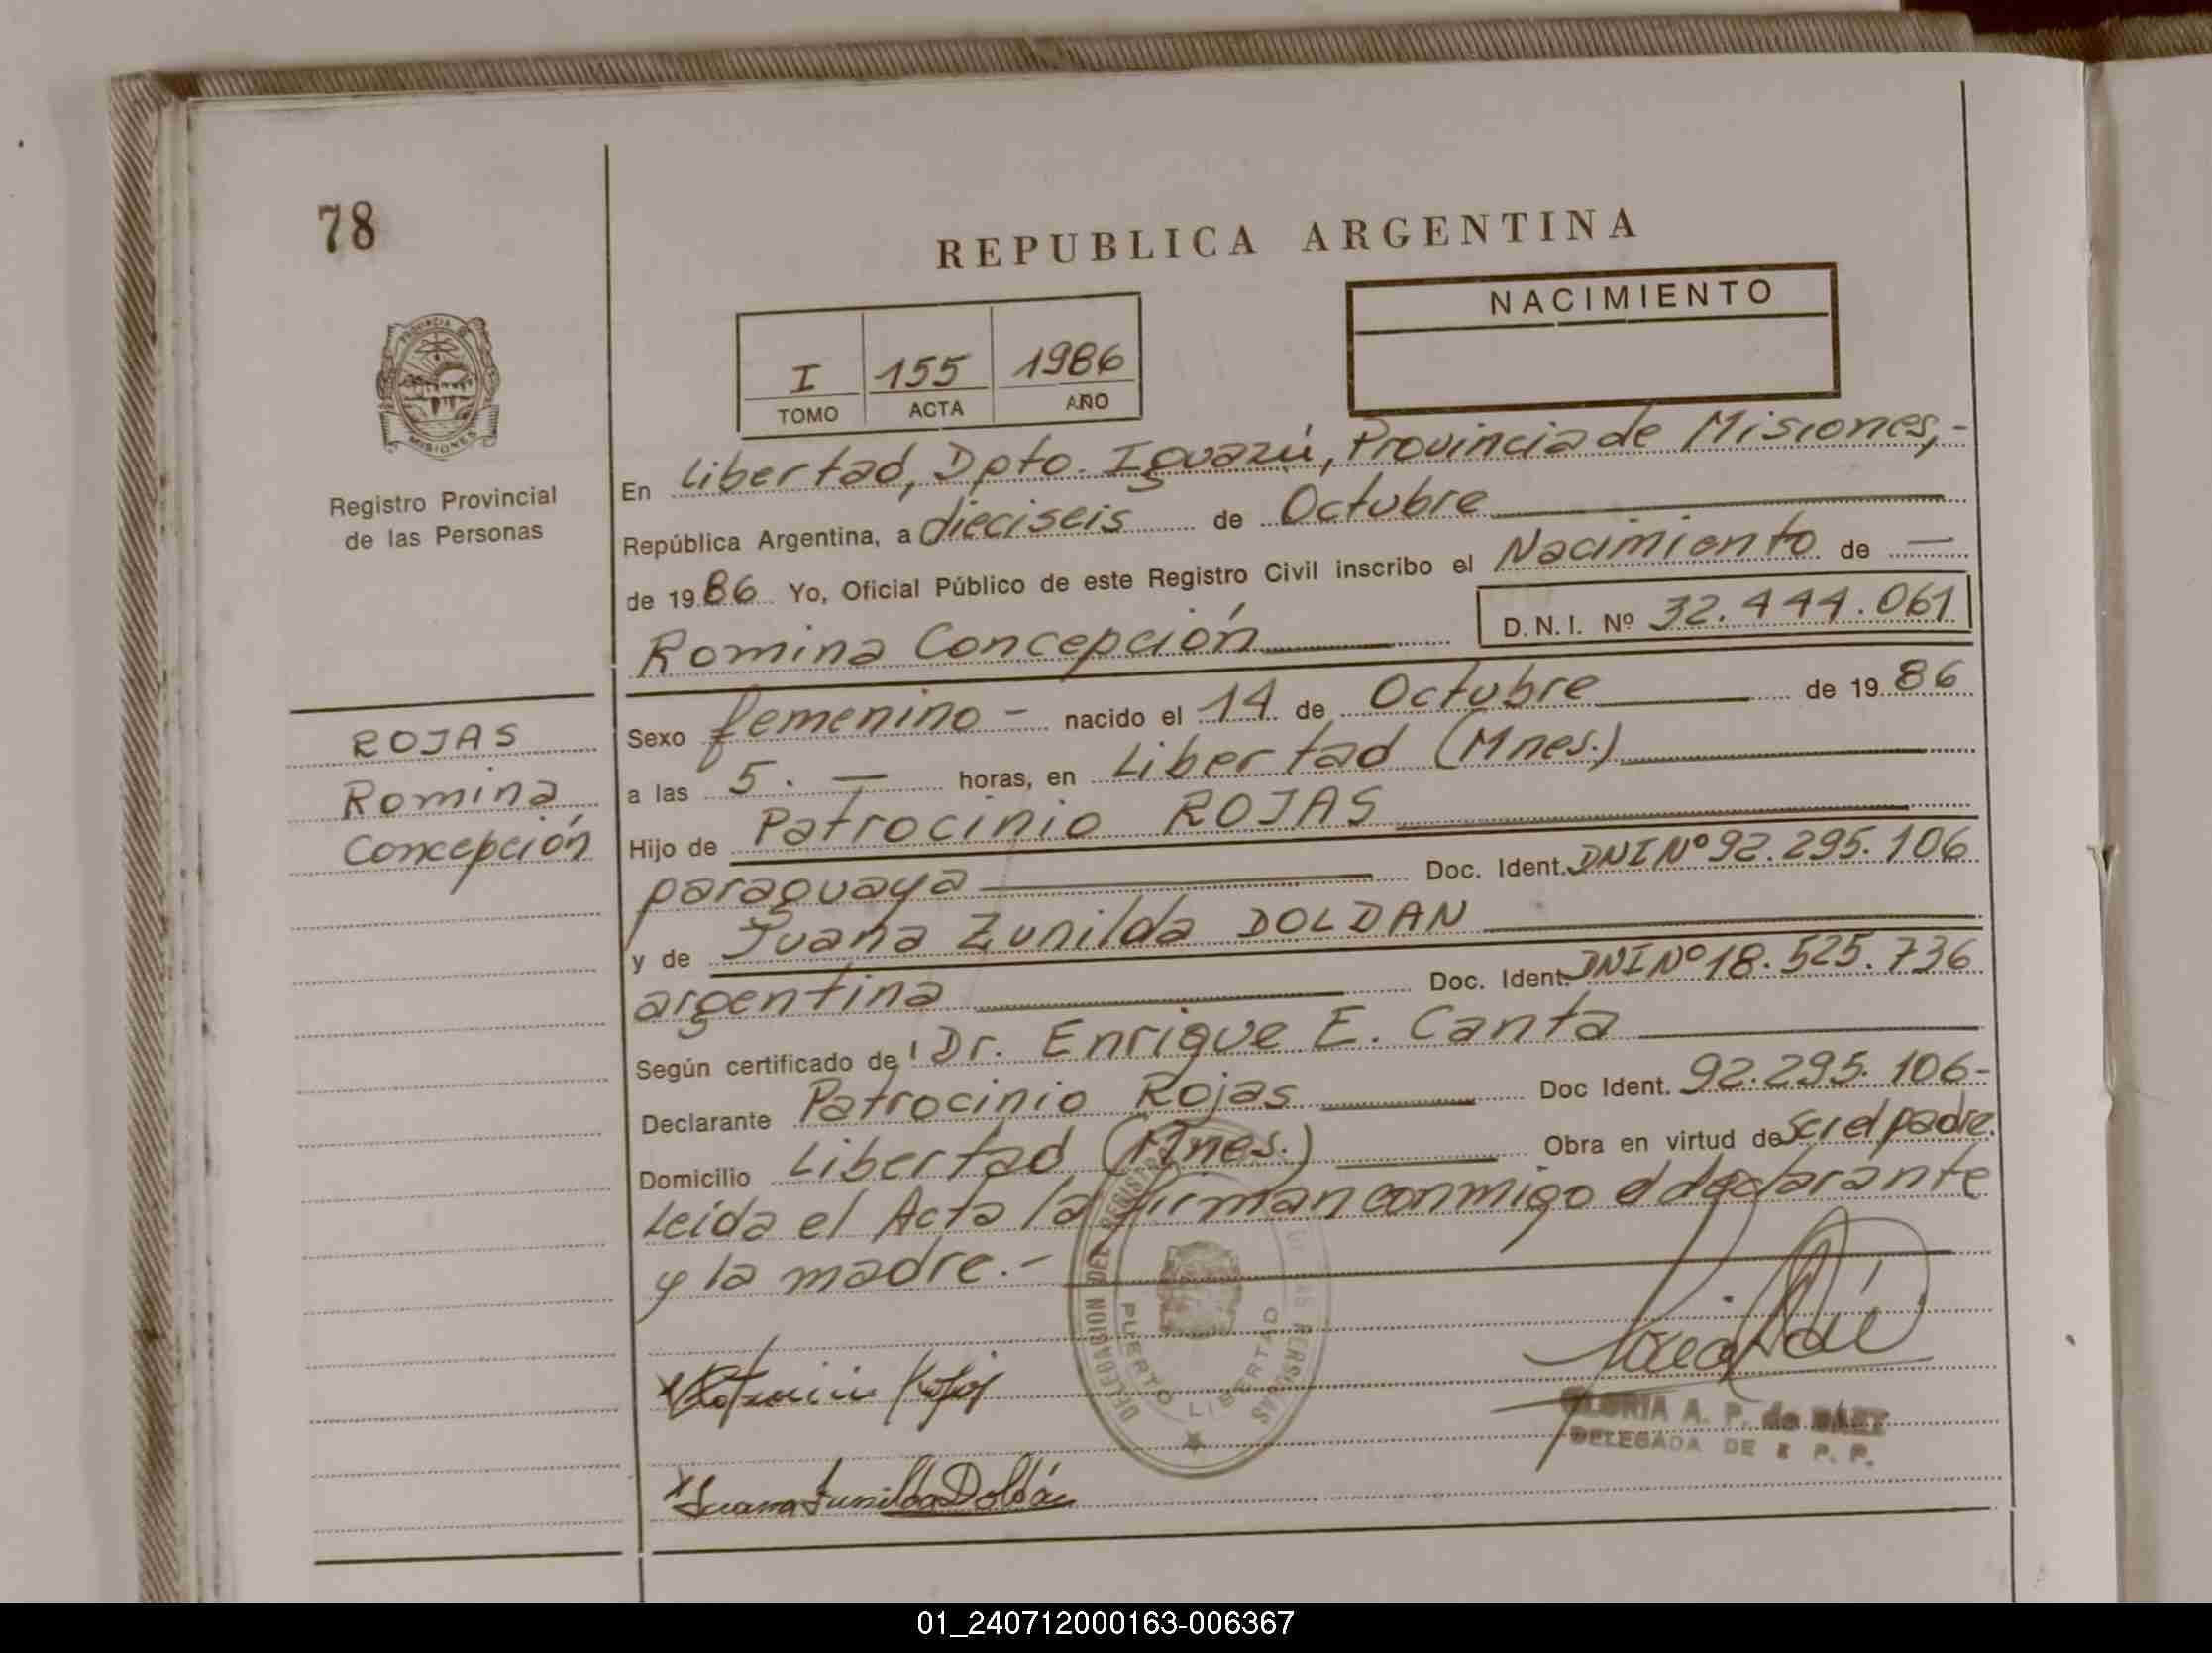 78
REPUBLICA ARGENTINA
NACIMIENTO
I 155 1986
TOMO ACTA AÑO
PROVINCIA DE
MISIONES
Registro Provincial
de las Personas
En Libertad, Dpto. Iguazú, Provincia de Misiones,-
República Argentina, a dieciseis de Octubre
de 1986 Yo, Oficial Público de este Registro Civil inscribo el Nacimiento de —
Romina Concepción D.N.I. Nº 32.444.061
ROJAS
Romina
Concepción
Sexo femenino - nacido el 14 de Octubre de 1986
a las 5. — horas, en Libertad (Mnes.)
Hijo de Patrocinio ROJAS
paraguaya Doc. Ident. DNI Nº 92.295.106
y de Juana Zunilda DOLDAN
argentina Doc. Ident. DNI Nº 18.525.736
Según certificado del Dr. Enrique E. Canta
Declarante Patrocinio Rojas Doc Ident. 92.295.106-
Domicilio Libertad (Mnes.) Obra en virtud de ser el padre.
Leida el Acta la firman conmigo el declarante
y la madre.-
DELEGACION DEL REGISTRO DE LAS PERSONAS
PUERTO LIBERTAD
x Patrocinio Rojas
x Juana Zunilda Doldán
GLORIA A. P. de
DELEGADA DE R. P. P.
01_240712000163-006367